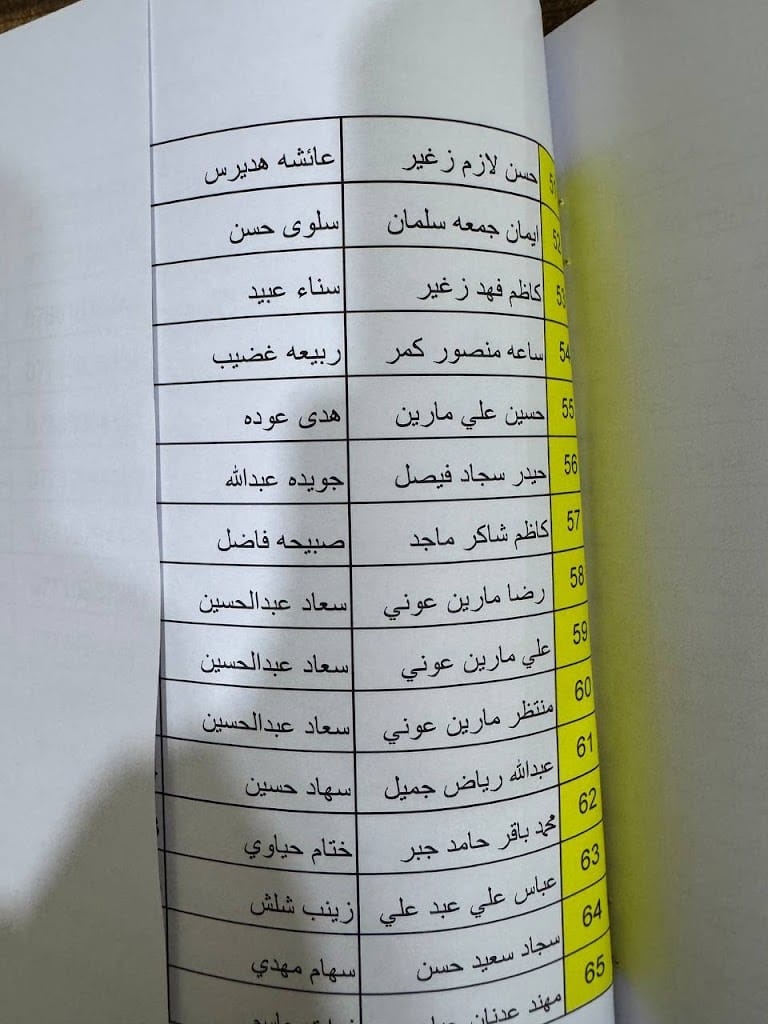 51 حسن لازم زغير عائشه هديرس
52 ايمان جمعه سلمان سلوى حسن
53 كاظم فهد زغير سناء عبيد
54 ساعه منصور كمر ربيعه غضيب
55 حسين علي مارين هدى عوده
56 حيدر سجاد فيصل جويده عبدالله
57 كاظم شاكر ماجد صبيحه فاضل
58 رضا مارين عوني سعاد عبدالحسين
59 علي مارين عوني سعاد عبدالحسين
60 منتظر مارين عوني سعاد عبدالحسين
61 عبدالله رياض جميل سهاد حسين
62 محمد باقر حامد جبر ختام حياوي
63 عباس علي عبد علي زينب شلش
64 سجاد سعيد حسن سهام مهدي
65 مهند عدنان